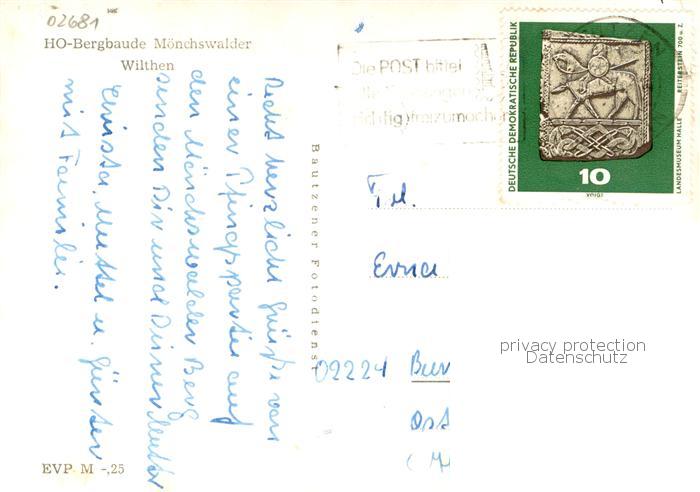 02681
HO-Bergbaude Mönchswalder
Wilthen
Recht herzliche Grüße von
einer Pfingstpartie auf
den Mönchswalder Berg
senden Dir und Deiner Mutter
Christa, Mutter u. Günter
mit Familie.
EVP M -,25
Bautzener Fotodienst
Die POST bittet
richtig freizumachen
DEUTSCHE DEMOKRATISCHE REPUBLIK
10
VOIGT
REITERSTEIN 700 u. Z.
LANDESMUSEUM HALLE
Frl.
Erna
02224
privacy protection
Datenschutz